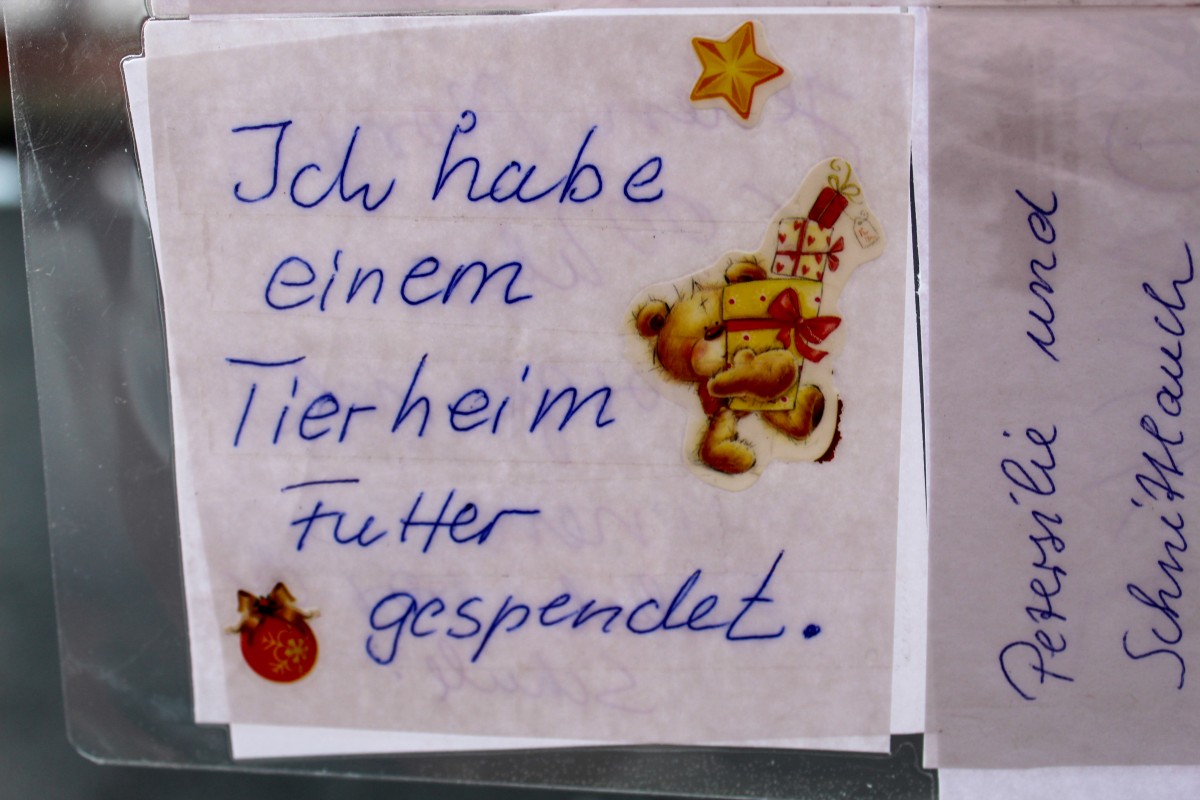 Ich habe
einem
Tierheim
Futter
gespendet.
Petersilie und
Schnittlauch